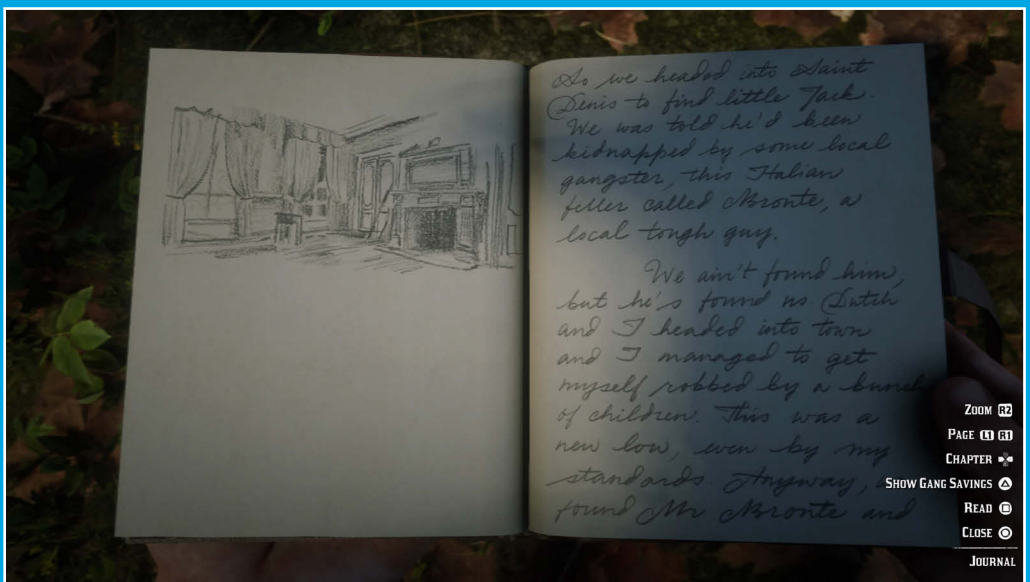 So we headed into Saint
Denis to find little Jack.
We was told he'd been
kidnapped by some local
gangster, this Italian
feller called Bronte, a
local tough guy.
We ain't found him,
but he's found us Dutch
and I headed into town
and I managed to get
myself robbed by a bunch
of children. This was a
new low, even by my
standards. Anyway,
found Mr Bronte and
ZOOM R2
PAGE L1 R1
CHAPTER
SHOW GANG SAVINGS
READ
CLOSE
JOURNAL